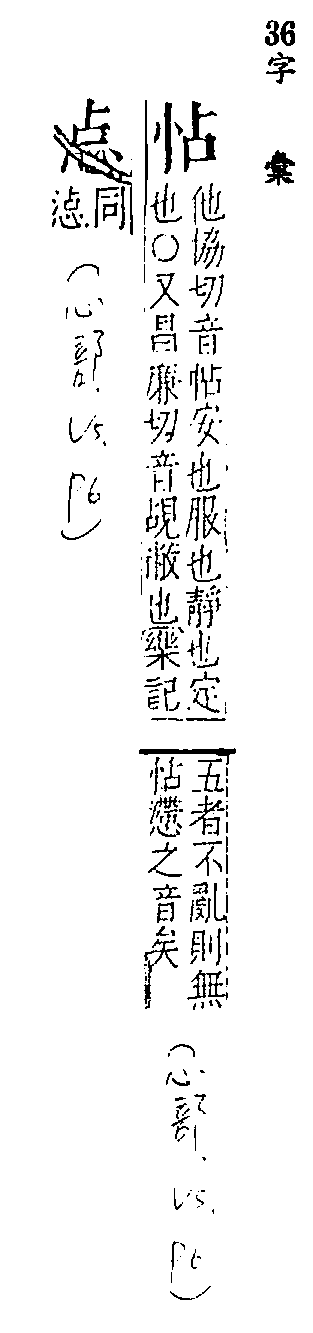 36
字彙
怗
他協切音帖安也服也靜也定
也○又昌廉切音覘敝也樂記
五者不亂則無
怗懘之音矣
(心部. V5. P6)
惉
同
惉
(心部. V5. P6)